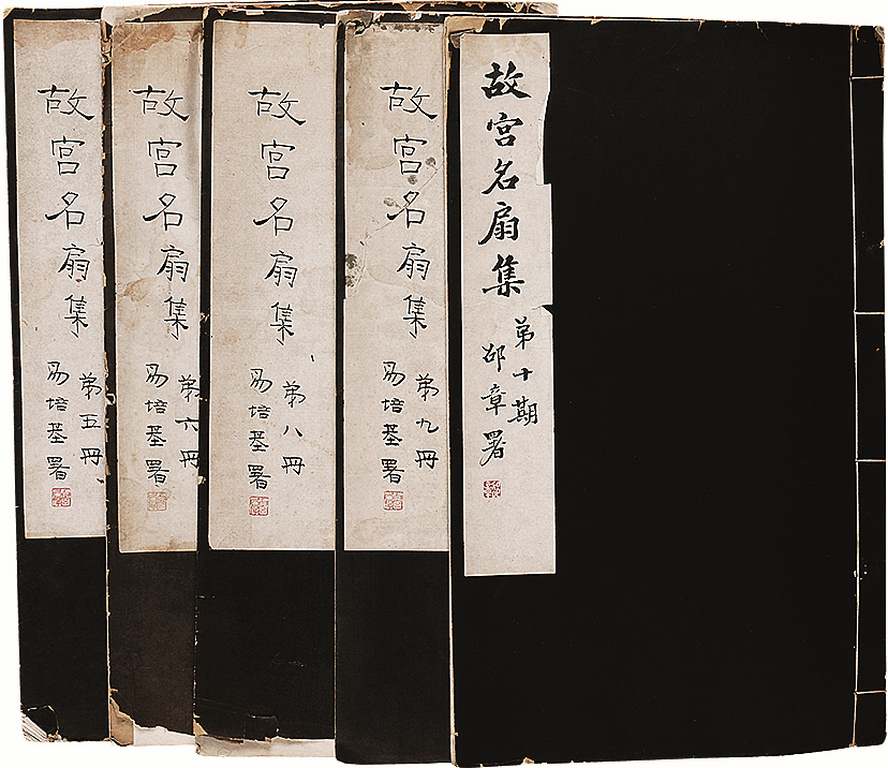 故宮名扇集
第十期
邵章署
故宮名扇集
第九冊
易培基署
故宮名扇集
第八冊
易培基署
故宮名扇集
第六冊
易培基署
故宮名扇集
第五冊
易培基署